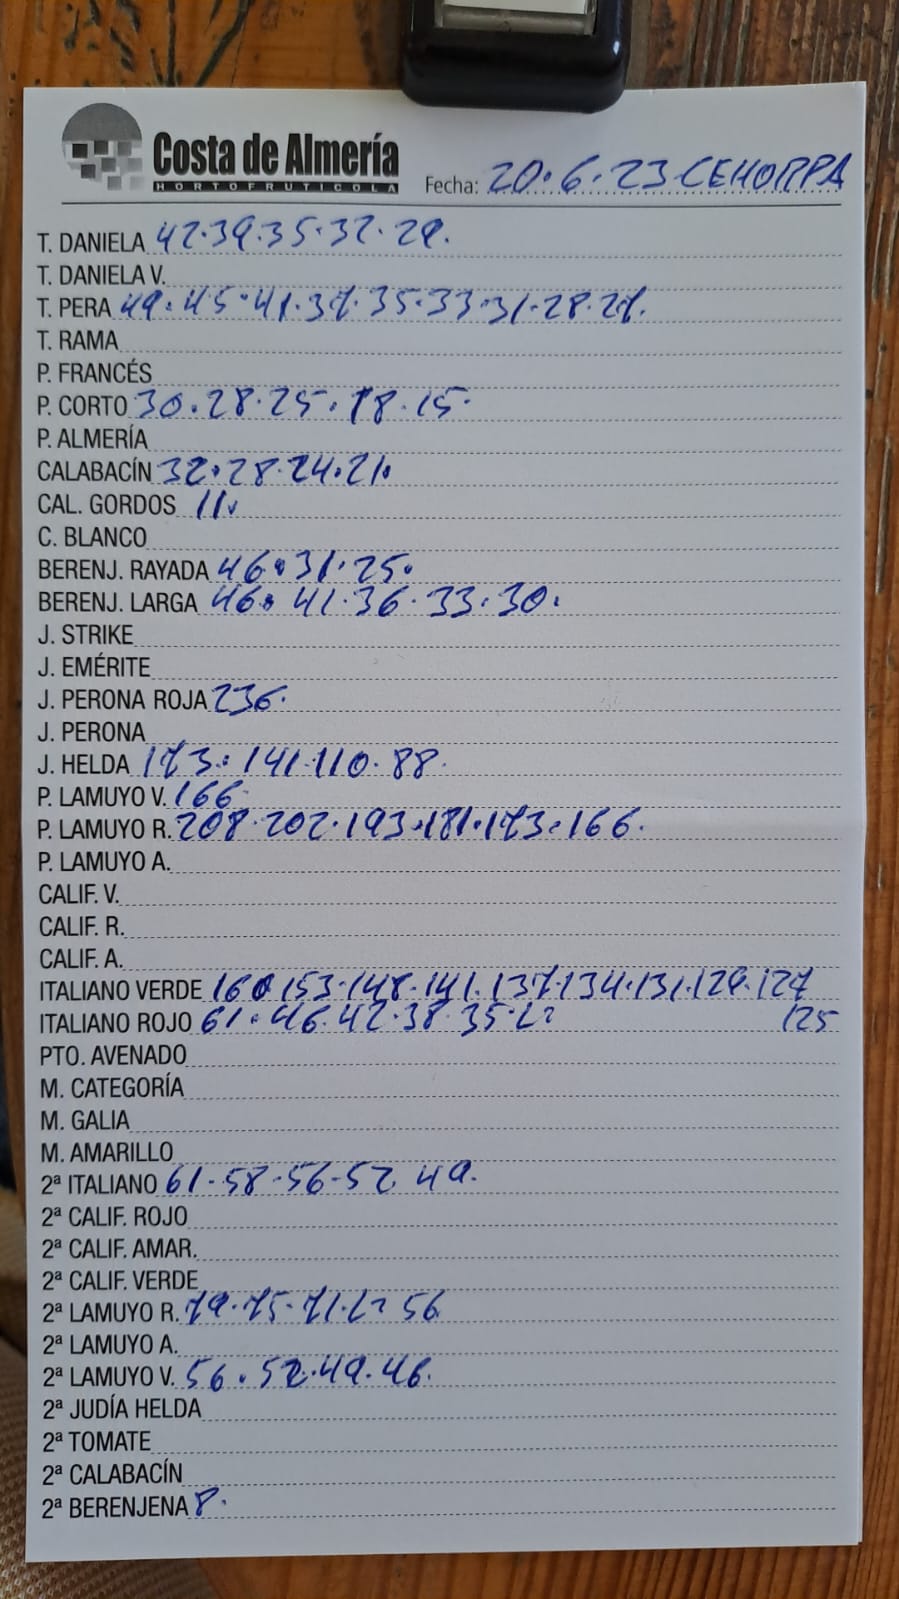 Costa de Almería
HORTOFRUTICOLA
Fecha: 20.6.23 CEHORPA
T. DANIELA 42.39.35.32.29.
T. DANIELA V.
T. PERA 49.45.41.37.35.33.31.28.27.
T. RAMA
P. FRANCÉS
P. CORTO 30.28.25.18.15.
P. ALMERÍA
CALABACÍN 32.28.24.21.
CAL. GORDOS 11.
C. BLANCO
BERENJ. RAYADA 46.31.25.
BERENJ. LARGA 46.41.36.33.30.
J. STRIKE
J. EMÉRITE
J. PERONA ROJA 236.
J. PERONA
J. HELDA 173.141.110.88.
P. LAMUYO V. 166.
P. LAMUYO R. 208.202.193.181.173.166.
P. LAMUYO A.
CALIF. V.
CALIF. R.
CALIF. A.
ITALIANO VERDE 160.153.148.141.137.134.131.129.127
ITALIANO ROJO 61.46.42.38.35. 125
PTO. AVENADO
M. CATEGORÍA
M. GALIA
M. AMARILLO
2ª ITALIANO 61.58.56.52 49.
2ª CALIF. ROJO
2ª CALIF. AMAR.
2ª CALIF. VERDE
2ª LAMUYO R. 79.75.71. 56
2ª LAMUYO A.
2ª LAMUYO V. 56.52.49.46.
2ª JUDÍA HELDA
2ª TOMATE
2ª CALABACÍN
2ª BERENJENA 8.